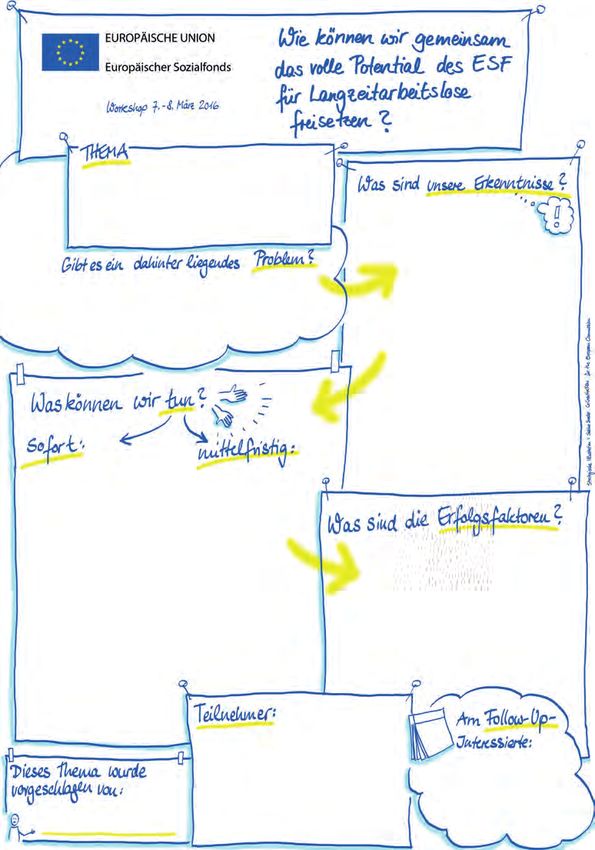 EUROPÄISCHE UNION
Europäischer Sozialfonds
Workshop 7.-8. März 2016
Wie können wir gemeinsam
das volle Potential des ESF
für Langzeitarbeitslose
freisetzen?
THEMA
Gibt es ein dahinter liegendes Problem?
Was sind unsere Erkenntnisse?
!
Was können wir tun?
Sofort:
mittelfristig:
Was sind die Erfolgsfaktoren?
Teilnehmer:
Am Follow-Up-
Interessierte:
Dieses Thema wurde
vorgeschlagen von: